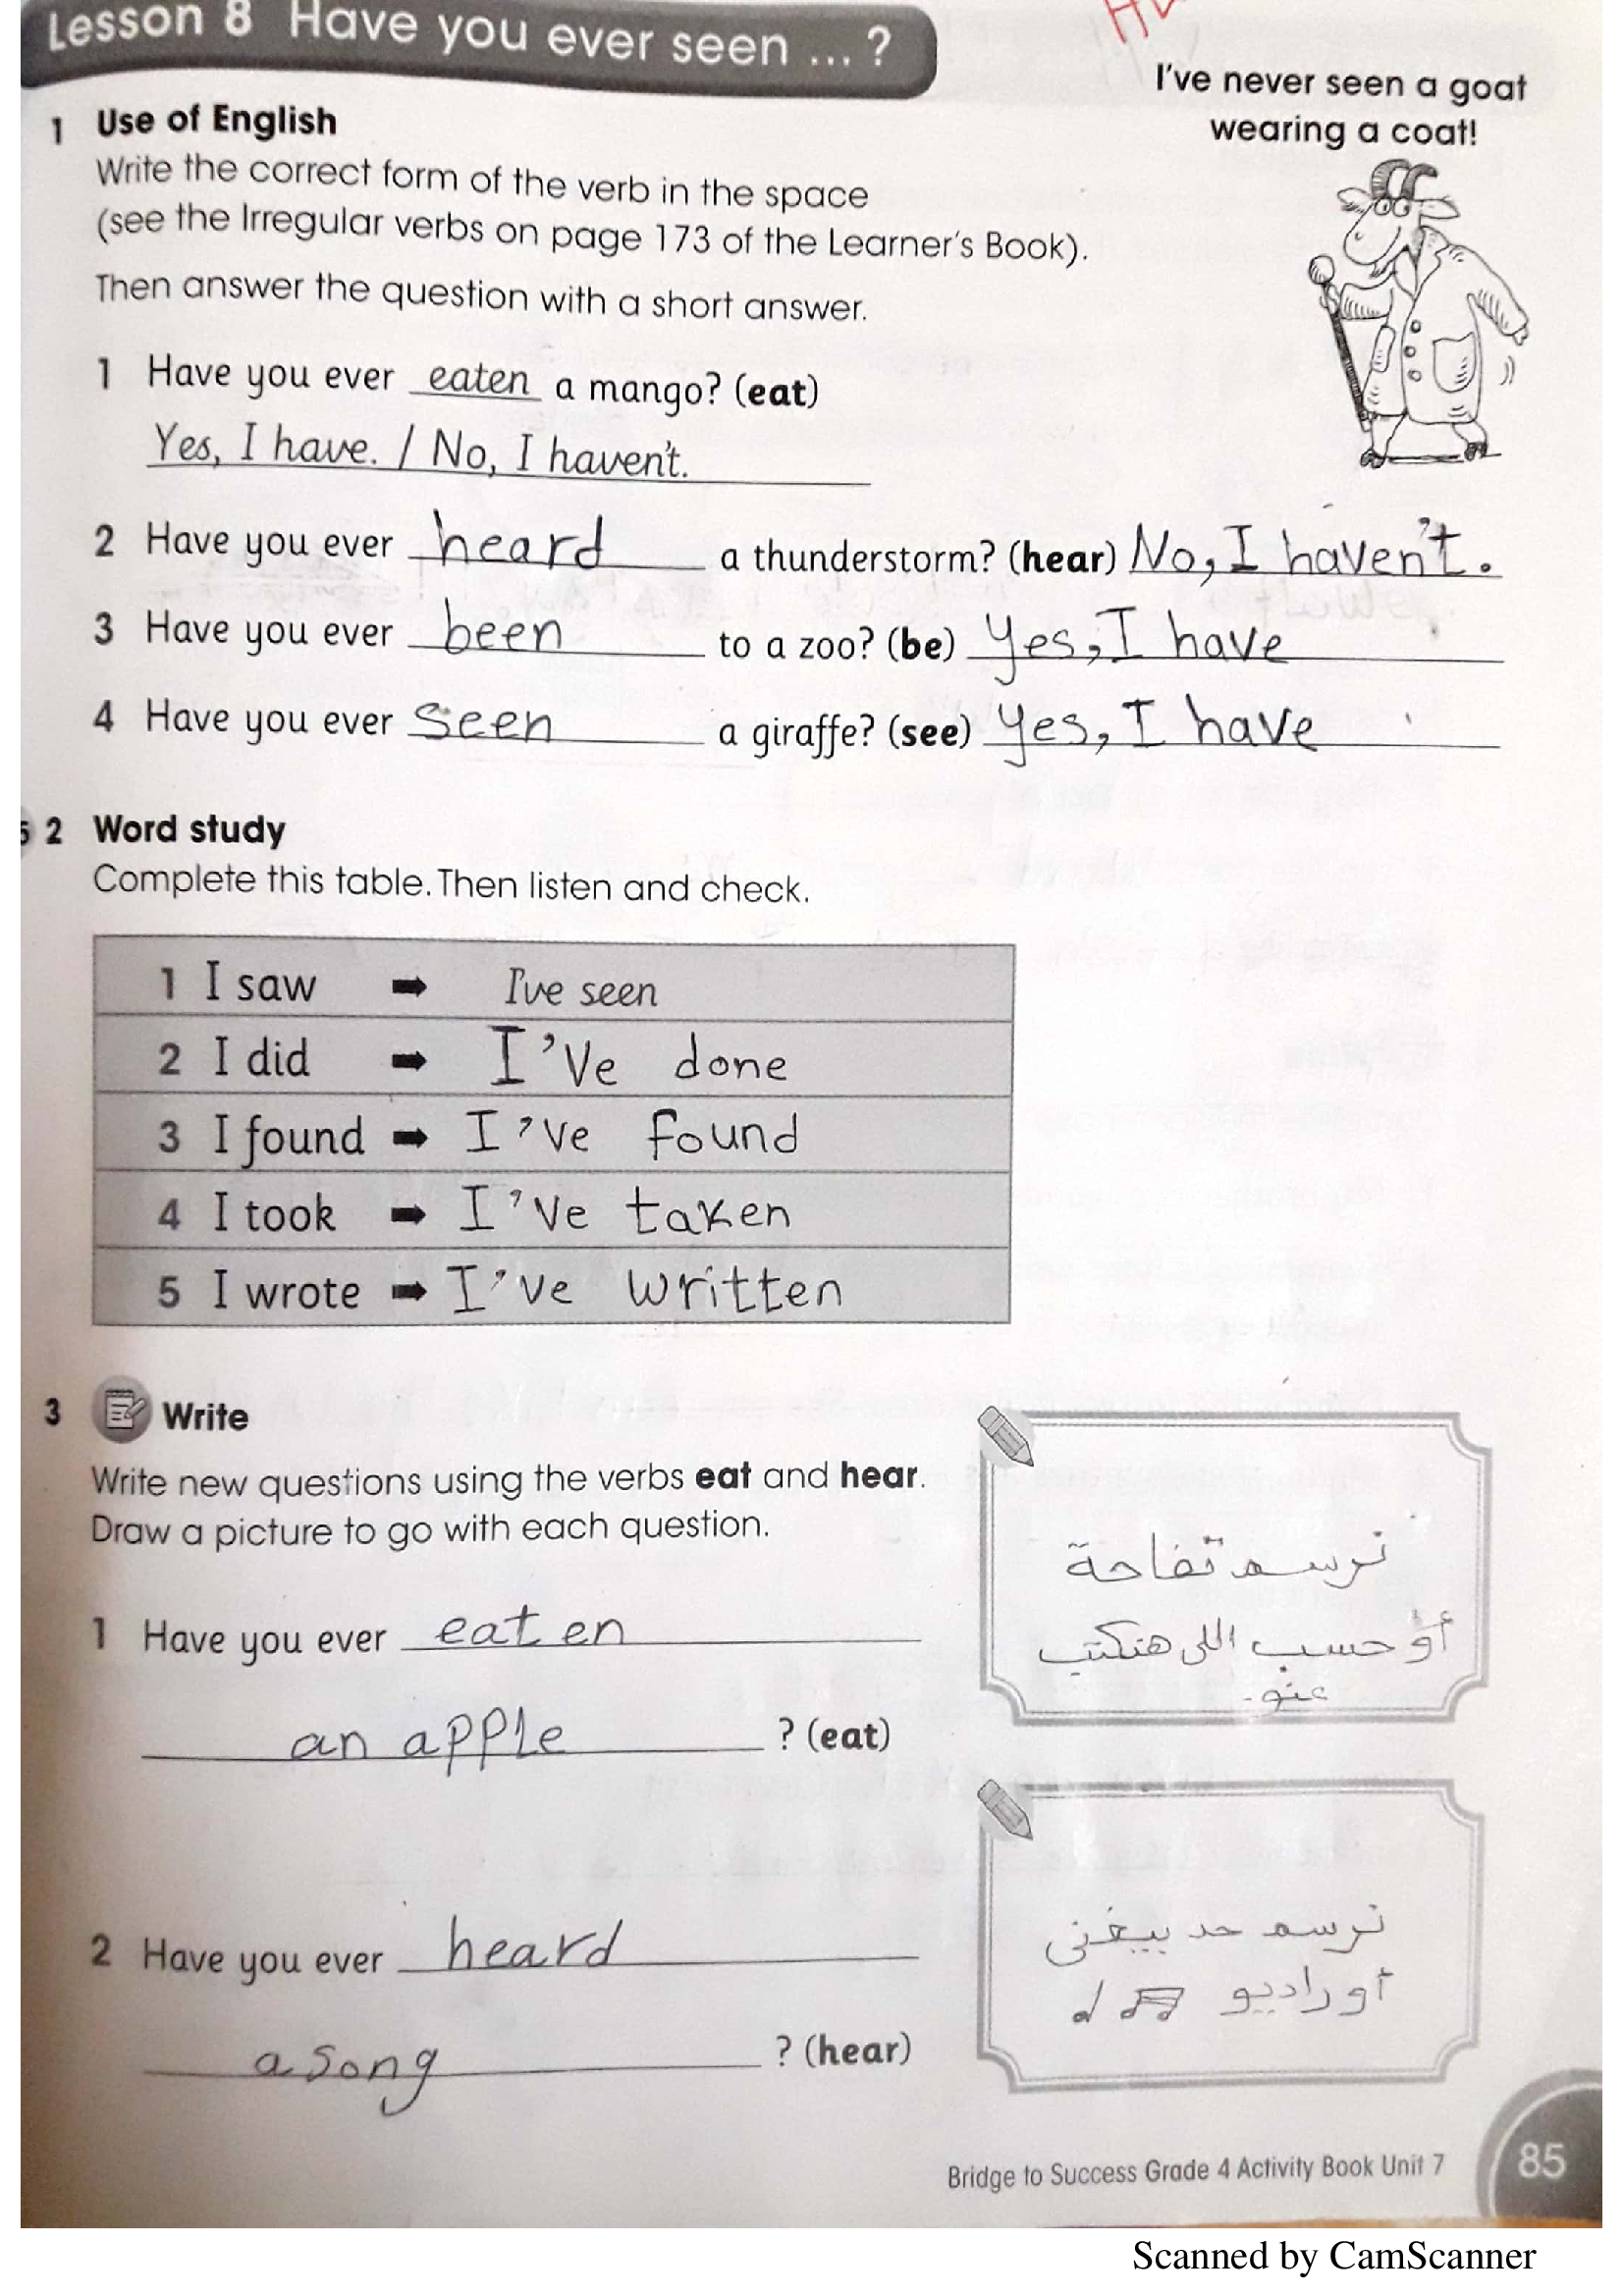 Lesson 8 Have you ever seen ... ?
I've never seen a goat
wearing a coat!
1 Use of English
Write the correct form of the verb in the space
(see the Irregular verbs on page 173 of the Learner's Book).
Then answer the question with a short answer.
1 Have you ever eaten a mango? (eat)
Yes, I have. / No, I haven't.
2 Have you ever heard a thunderstorm? (hear) No, I haven't.
3 Have you ever been to a zoo? (be) Yes, I have
4 Have you ever seen a giraffe? (see) yes, I have
2 Word study
Complete this table. Then listen and check.
1 I saw ➡ I've seen
2 I did ➡ I've done
3 I found ➡ I've found
4 I took ➡ I've taken
5 I wrote ➡ I've written
3 Write
Write new questions using the verbs eat and hear.
Draw a picture to go with each question.
1 Have you ever eaten
an apple ? (eat)
نرسم تفاحة
أو حسب اللى هنكتب
عنو
2 Have you ever heard
a song ? (hear)
نرسم حد بيغنى
أو راديو
Bridge to Success Grade 4 Activity Book Unit 7
85
Scanned by CamScanner